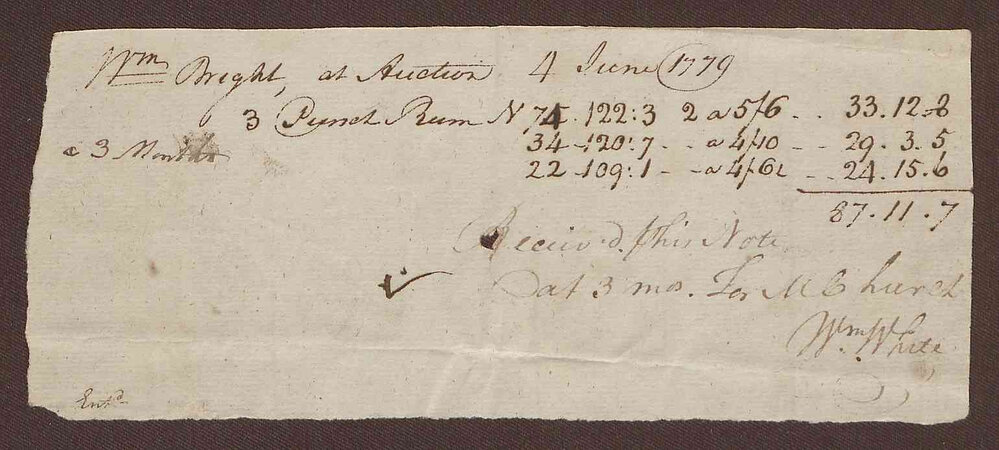 Wm Bright, at Auction 4 June 1779
3 Punch Rum N 74 . 122:3 2 a 5/6 . . 33.12.8
a 3 Months 34 - 120:7 . . a 4/10 - - 29 . 3 . 5
22 - 109:1 - - a 4/6 - - 24.15.6
87.11.7
Receiv'd this Note
at 3 mos. For M Church
Wm White
Entd